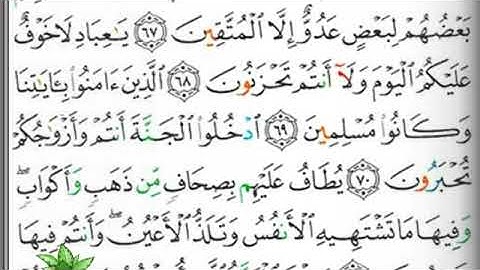 بَعْضُهُمْ لِبَعْضٍ عَدُوٌّ إِلَّا الْمُتَّقِينَ ٦٧ يَٰعِبَادِ لَا خَوْفٌ
عَلَيْكُمُ الْيَوْمَ وَلَآ أَنتُمْ تَحْزَنُونَ ٦٨ الَّذِينَ ءَامَنُوا بِـَٔايَٰتِنَا
وَكَانُوا مُسْلِمِينَ ٦٩ ادْخُلُوا الْجَنَّةَ أَنتُمْ وَأَزْوَٰجُكُمْ
تُحْبَرُونَ ٧٠ يُطَافُ عَلَيْهِم بِصِحَافٍ مِّن ذَهَبٍ وَأَكْوَابٍ ۖ
وَفِيهَا مَا تَشْتَهِيهِ الْأَنفُسُ وَتَلَذُّ الْأَعْيُنُ ۖ وَأَنتُمْ فِيهَا